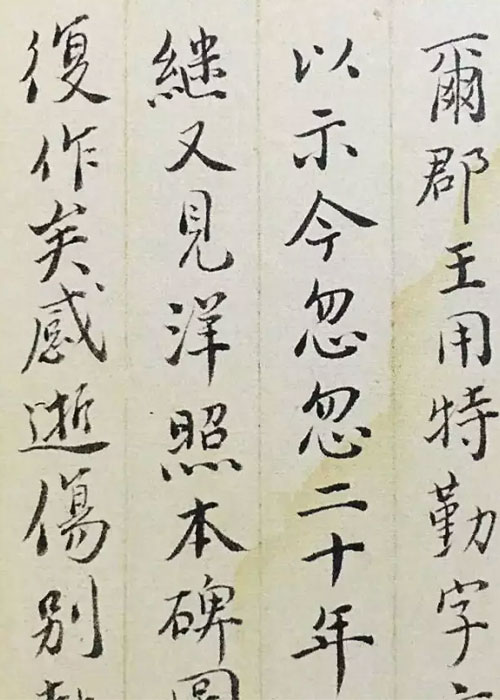 爾郡王用特勤字
以示今忽忽二十年
繼又見洋照本碑圖
復作矣感逝傷別